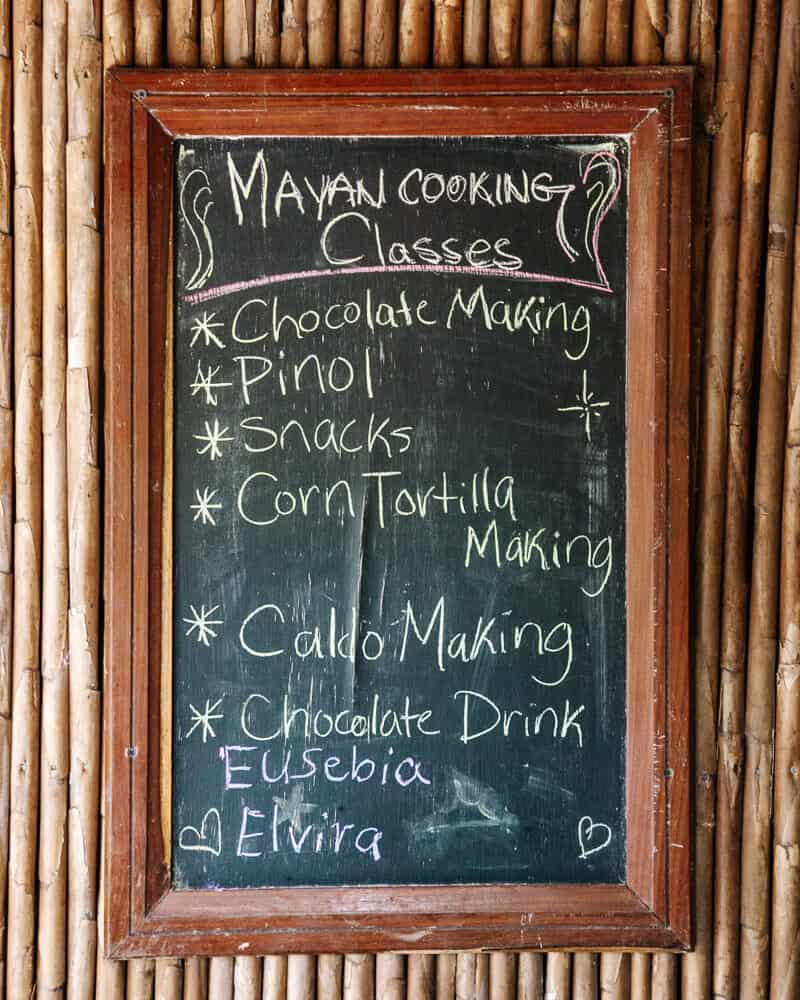 MAYAN COOKING
Classes
* Chocolate Making
* Pinol
* Snacks
* Corn Tortilla
Making
* Caldo Making
* Chocolate Drink
Eusebia
Elvira